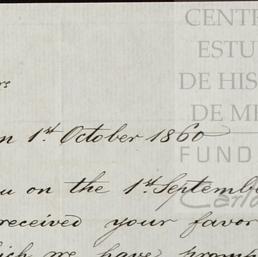 CENTR
ESTU
DE HIS
DE ME
FUND
Carlo
rs
n 1st. October 1860
u on the 1st. Septembe
received your favor
ich we have promp